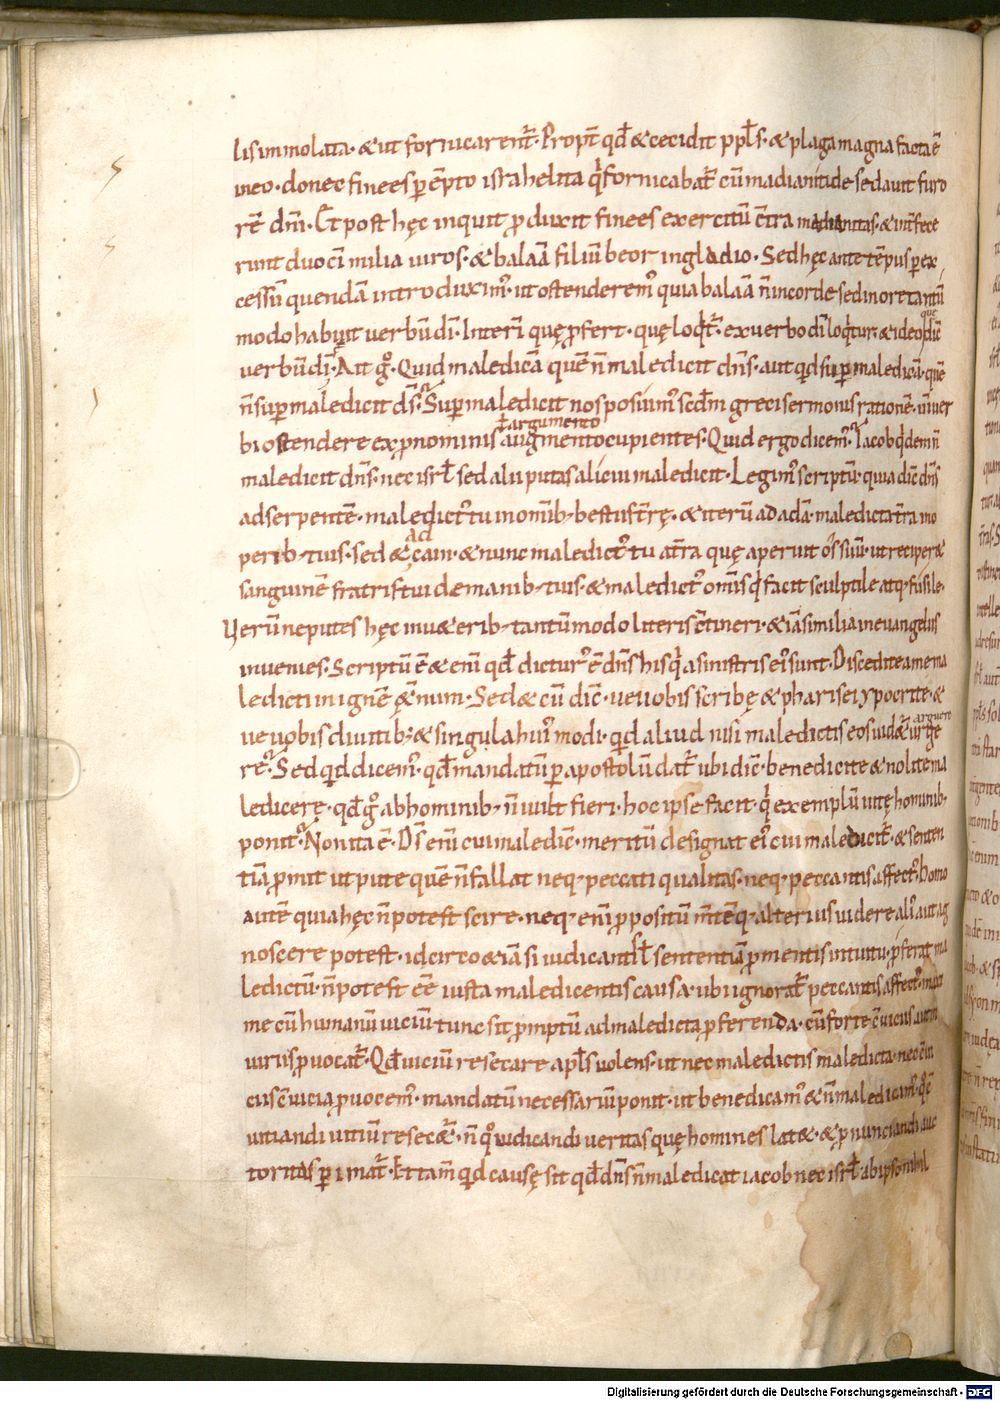 lis immolata· & ut fornicarent᷑· Propt̄ qd̄ & cecidit ppl̄s· & plaga magna facta ē
in eo· donec finees pēpto israhelita q̇ fornicabat᷑ cū madianitide sedauit furo
rē dn̄i· Et post hęc inquit produxit finees exercitū c̄tra madianitas· & int̄fece
runt duodeci milia uiros· & balaā filiū beor in gladio· Sed hęc ante tēpus per ex
cessū quendā introduxim᷒· ut ostenderem᷒ quia balaā n̄ in corde sed in ore tantū
modo habuit uerbū dī· Interī quę pfert· quę loqt᷑· ex uerbo dī loqtur· & ideo dic̄
que
uerbū dī· Ait g̊· Quid maledicā quē n̄ maledicit dn̄s· aut qd sup maledicā· quē
n̄ sup maledicit ds̄· Sup maledicit nos posuim᷒ scdm greci sermonis rationē· uim uer
ł argumento
bi ostendere ex pnominis augmento cupientes· Quid ergo dicem᷒· Iacob qdem n̄
maledicit dn̄s· nec isrł sed alii putas alicui maledicit· Legim᷒ scriptū· quia dic̄ dn̄s
ad serpentē· maledict᷒ tu in omīb; bestiis t̄rę· & iterū ad adā· maledicta t̄ra in o
Ad
perib; tuis· sed & cain· & nunc maledict᷒ tu a t̄ra quę aperuit os suū· ut reciper&
sanguinē fratris tui de manib; tuis· & maledict᷒ omīs q facit sculptile atq; fusile·
Uerū ne putes hęc in u&erib; tantūmodo literis c̄tineri· & iā similia in euangeliis
inuenies· Scriptū ē & enī qd̄ dictur᷒ ē dn̄s his q̇ a sinistris ei᷒ sunt· Discedite a me ma
ledicti in ignē &̄num· Sed & cū dic̄· ue uobis scribę & pharisei ypocrite· &
arguere
ue uobis diuitib; & singula hui᷒ modi· quid aliud nisi maledictis eos uid&᷑ urge
re· Sed qd dicem᷒· qd̄ mandatū p apostolū dat᷑ ubi dic̄· benedicite & nolite ma
ledicerę· qd̄ g̊ ab hominib; n̄ iub& fieri· hoc ipse facit· q̇ exemplū uitę hominib;
ponit· Non ita ē· Ds̄ enī cui maledic̄· meritū designat ei᷒ cui maledicit᷑· & senten
tiā pmit ut pute quē n̄ fallat neq; peccati qualitas· neq; peccantis affect᷒· Homo
autē quia hęc n̄ potest scire· neq; enī ppositū mētēq; alterius uidere aliꝰ aut ag
noscere potest· idcirco & iā si iudicantis ł sententiā pmentis intuitu· pferat ma
ledictū· n̄ potest eē iusta maledicentis causa· ubi ignorat᷑ peccantis affect᷒· maxi
me cū humanū uiciū tunc sit pmptū ad maledicta pferenda· cū forte c̄uiciis aut in
iuriis puocat᷑· Qd̄ uiciū resecare apl̄s uolens· ut nec maledictis maledicta· nec c̄ui
ciis c̄uicia puocem᷒· mandatū necessariū ponit· ut benedicam᷒ & n̄ maledicam᷒· q̊ ē
uitiandi uitiū resec&᷑· n̄ q̊ iudicandi ueritas quę homines lat&· & pnunciandi auc
toritas pimat᷑· Et tam̄ qd causę sit qd̄ dn̄s n̄ maledicat iacob nec isrł ab ipso nihil
Digitalisierung gefördert durch die Deutsche Forschungsgemeinschaft - DFG